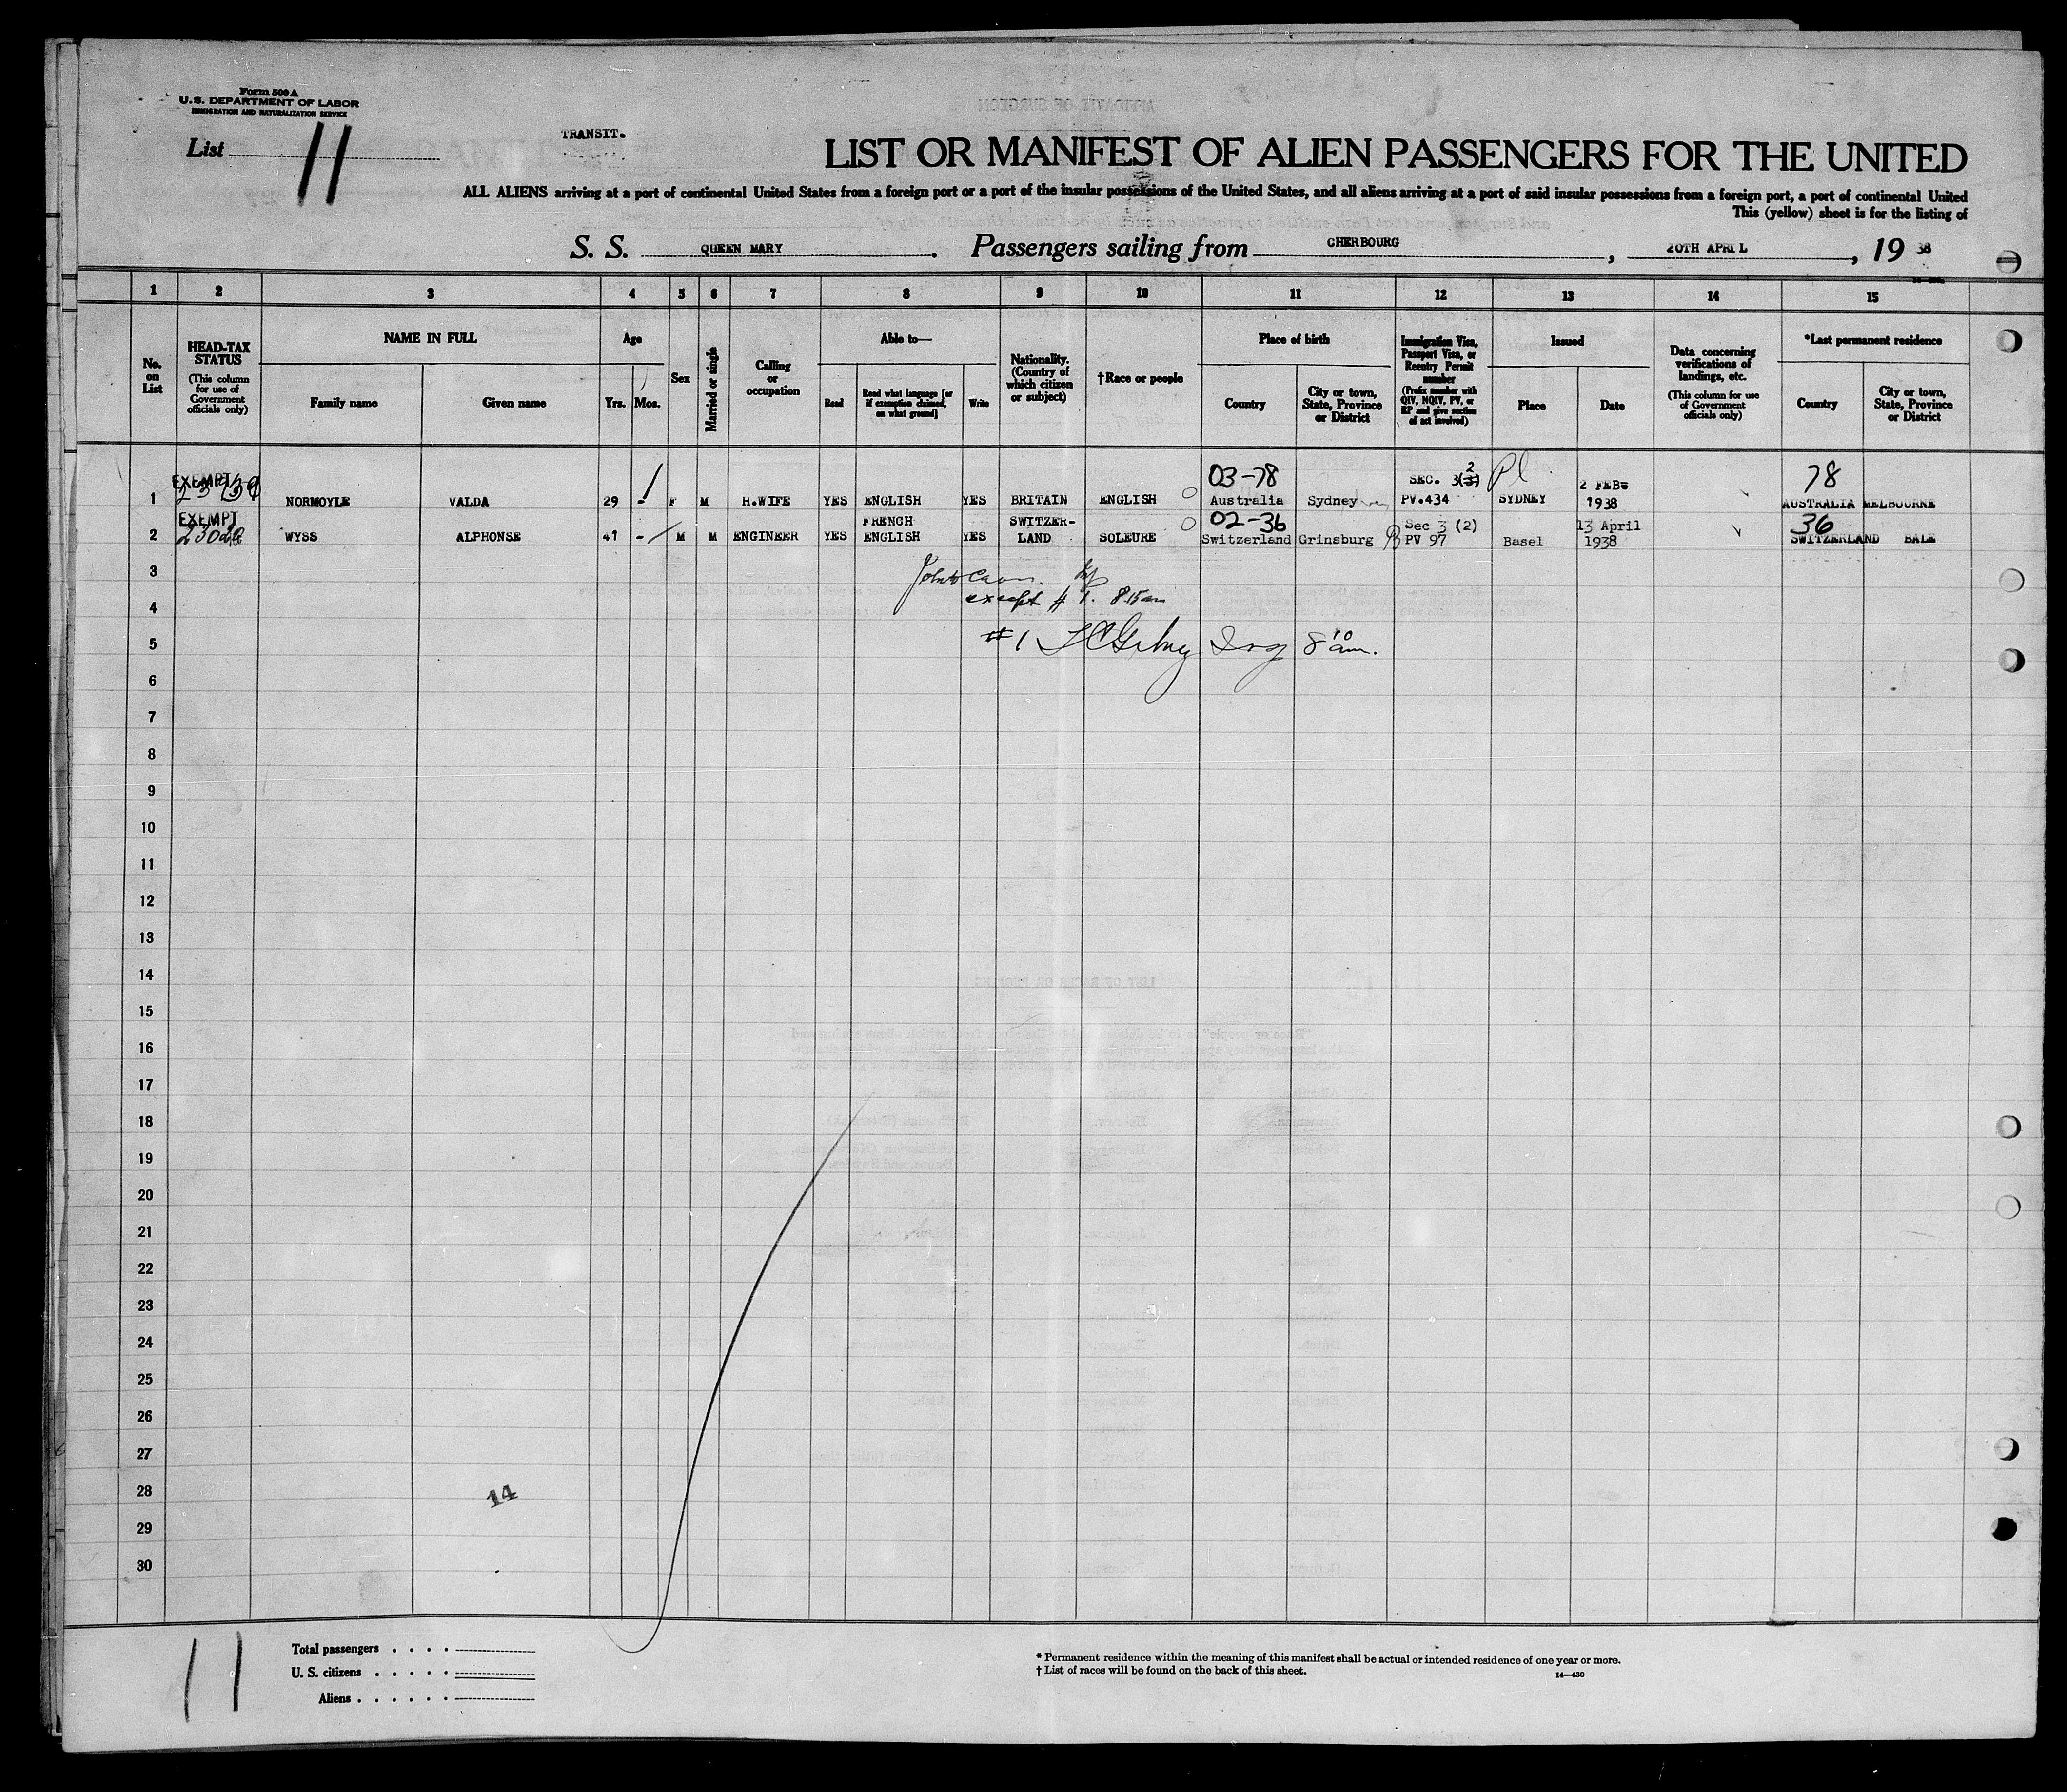 Form 500A
U.S. DEPARTMENT OF LABOR
IMMIGRATION AND NATURALIZATION SERVICE
List 11
TRANSIT.
LIST OR MANIFEST OF ALIEN PASSENGERS FOR THE UNITED
ALL ALIENS arriving at a port of continental United States from a foreign port or a port of the insular possessions of the United States, and all aliens arriving at a port of said insular possessions from a foreign port, a port of continental United
This (yellow) sheet is for the listing of
S. S. QUEEN MARY. Passengers sailing from CHERBOURG, 20TH APRIL, 19 38
1 2 3 4 5 6 7 8 9 10 11 12 13 14 15
No. on List
HEAD-TAX STATUS
(This column for use of Government officials only)
NAME IN FULL
Family name
Given name
Age
Yrs.
Mos.
Sex
Married or single
Calling or occupation
Able to—
Read
Read what language [or if exemption claimed, on what ground]
Write
Nationality. (Country of which citizen or subject)
†Race or people
Place of birth
Country
City or town, State, Province or District
Immigration Visa, Passport Visa, or Reentry Permit number
(Prefix number with QIV, NQIV, PV, or RP and give section of act involved)
Issued
Place
Date
Data concerning verifications of landings, etc.
(This column for use of Government officials only)
*Last permanent residence
Country
City or town, State, Province or District
EXEMPT 03-78 SEC. 3(3) 2 2 FEB: 78
1 NORMOYLE VALDA 29 - F M H.WIFE YES ENGLISH YES BRITAIN ENGLISH Australia Sydney PV.434 SYDNEY 1938 AUSTRALIA MELBOURNE
EXEMPT FRENCH SWITZER- 02-36 Sec 3 (2) 13 April 36
2 WYSS ALPHONSE 41 - M M ENGINEER YES ENGLISH YES LAND SOLEURE Switzerland Grinsburg PV 97 Basel 1938 SWITZERLAND BALE
3
except # 1. 8 15 am
4
#1 8 10 am.
5
6
7
8
9
10
11
12
13
14
15
16
17
18
19
20
21
22
23
24
25
26
27
28
14
29
30
11
Total passengers . . . .
U. S. citizens . . . . .
Aliens . . . . . .
* Permanent residence within the meaning of this manifest shall be actual or intended residence of one year or more.
† List of races will be found on the back of this sheet.
14—430